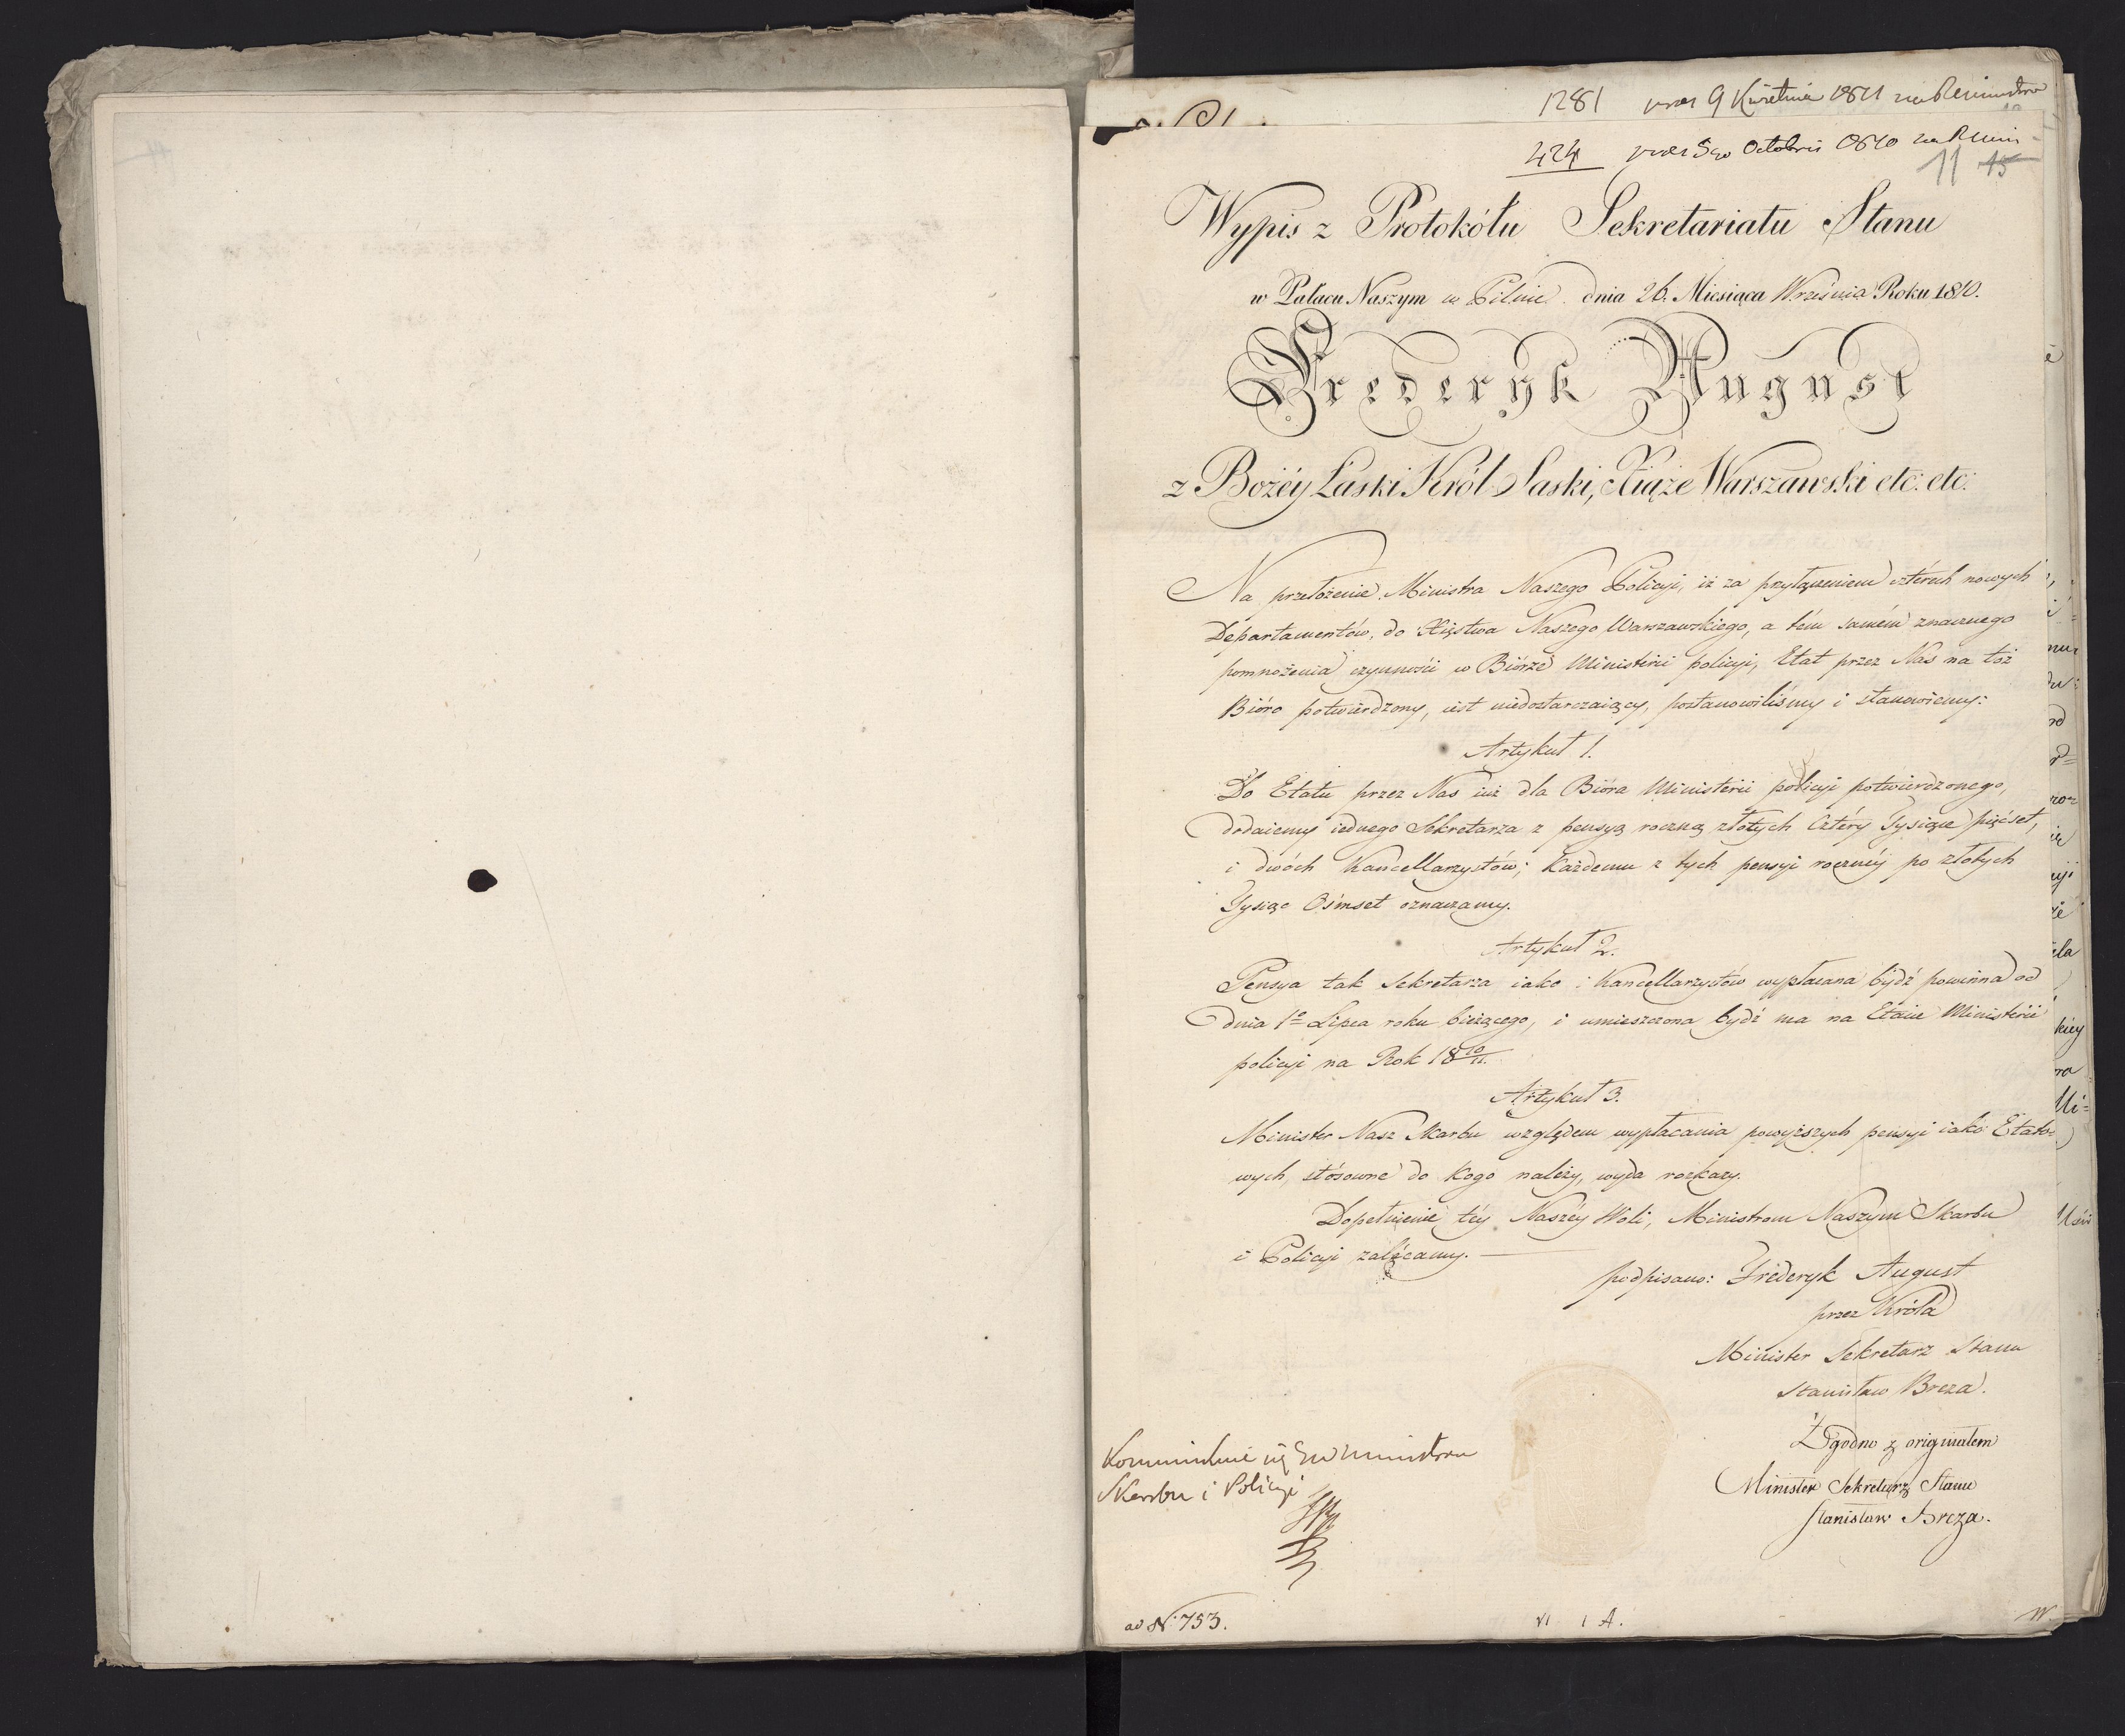 1281 9 Kwietnia 1811
424 5go Octobris 1810
11 15
Wypis z Protokółu Sekretariatu Stanu
w Pałacu Naszym w Pilnic dnia 26. Miesiąca Września Roku 1810.
Frederyk August
z Bożéy Łaski Król Saski, Xiąże Warszawski etc: etc:
Na przełożenie Ministra Naszego Policyi, iż za przyłączeniem czterech nowych
Departamentów, do Xięstwa Naszego Warszawskiego, a tém samém znacznego
pomnożenia czynności w Biórze Ministerii policyi, Etat przez Nas na toż
Bióro potwierdzony, iest niedostarczaiący, postanowiliśmy i stanowiemy:
Artykuł 1.
Do Etatu przez Nas iuż dla Bióra Ministerii policyi potwierdzonego,
dodaiemy iednego Sekretarza z pensyą roczną złotych Cztéry Tysiące pięćset,
i dwóch Kancellarzystów; każdemu z tych pensyi rocznéy po złotych
Tysiąc Ośmset oznaczamy.
Artykuł 2.
Pensya tak Sekretarza iako i Kancellarzystów wypłacana bydź powinna od
dnia 1o Lipca roku bieżącego, i umieszczona bydź ma na Etacie Ministerii
policyi na Rok 18 10/11.
Artykuł 3.
Minister Nasz Skarbu względem wypłacania powyższych pensyi iako Etato=
wych, stósowne do kogo należy, wyda rozkazy.
Dopełnienie téy Naszéy Woli, Ministrom Naszym Skarbu
i Policyi zalécamy.
podpisano: Fréderyk August
przez Króla
Minister Sekretarz Stanu
Stanisław Breza.
Zgodno z originałem
Minister Sekretarz Stanu
Stanisław Breza.
Ministrom
Skarbu i Policyi
ad N 753.
VI 1 A.